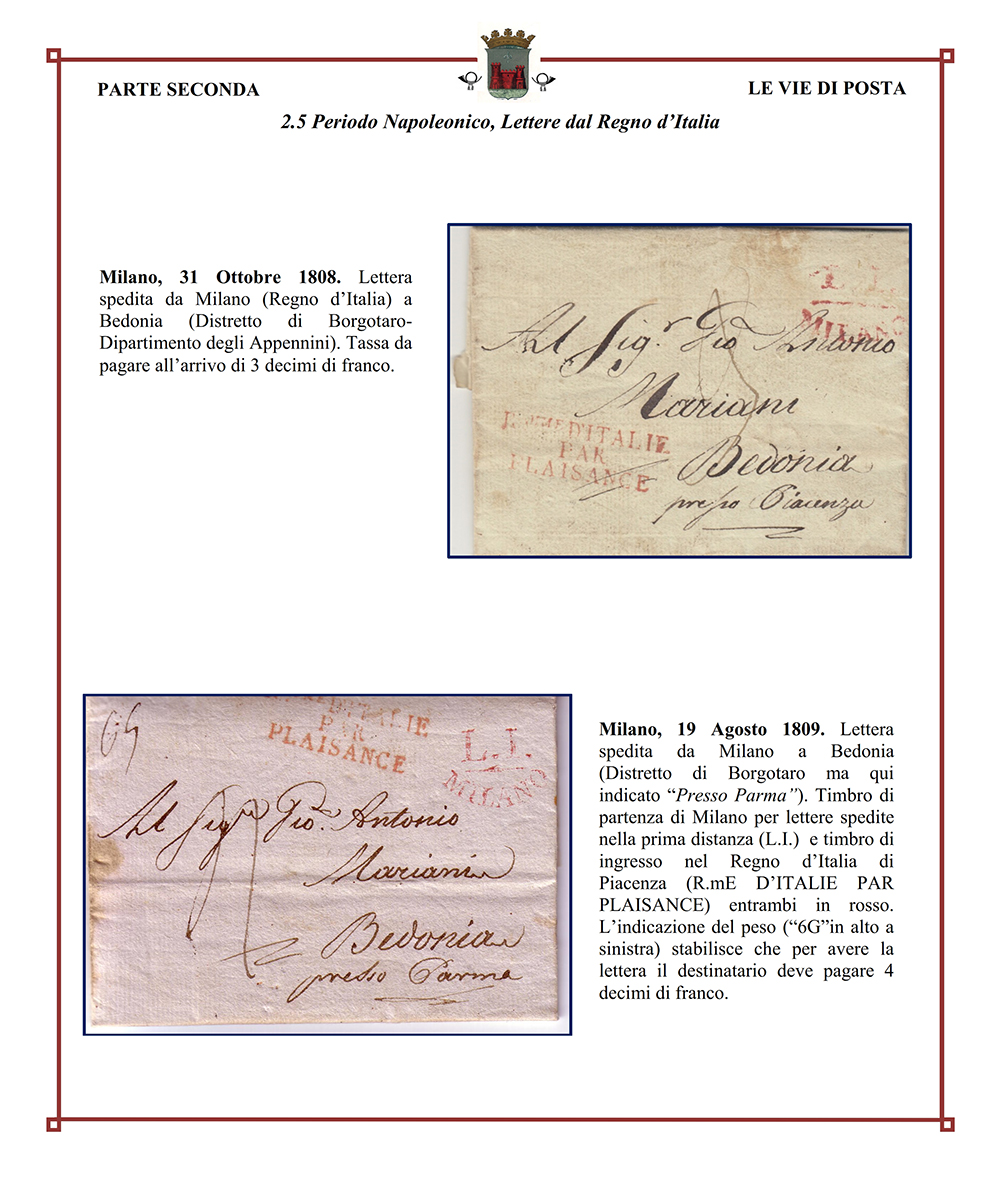 PARTE SECONDA
LE VIE DI POSTA
2.5 Periodo Napoleonico, Lettere dal Regno d’Italia
Milano, 31 Ottobre 1808. Lettera
spedita da Milano (Regno d’Italia) a
Bedonia (Distretto di Borgotaro-
Dipartimento degli Appennini). Tassa da
pagare all’arrivo di 3 decimi di franco.
L.I.
MILANO
Al Sig.r Gio Antonio
Mariani
Bedonia
presso Piacenza
D'ITALIE
PAR
PLAISANCE
3
6G
D'ITALIE
PAR
PLAISANCE
L.I.
MILANO
Al Sig.r Gio. Antonio
Mariani
Bedonia
presso Parma
4
Milano, 19 Agosto 1809. Lettera
spedita da Milano a Bedonia
(Distretto di Borgotaro ma qui
indicato “Presso Parma”). Timbro di
partenza di Milano per lettere spedite
nella prima distanza (L.I.) e timbro di
ingresso nel Regno d’Italia di
Piacenza (R.mE D’ITALIE PAR
PLAISANCE) entrambi in rosso.
L’indicazione del peso (“6G”in alto a
sinistra) stabilisce che per avere la
lettera il destinatario deve pagare 4
decimi di franco.